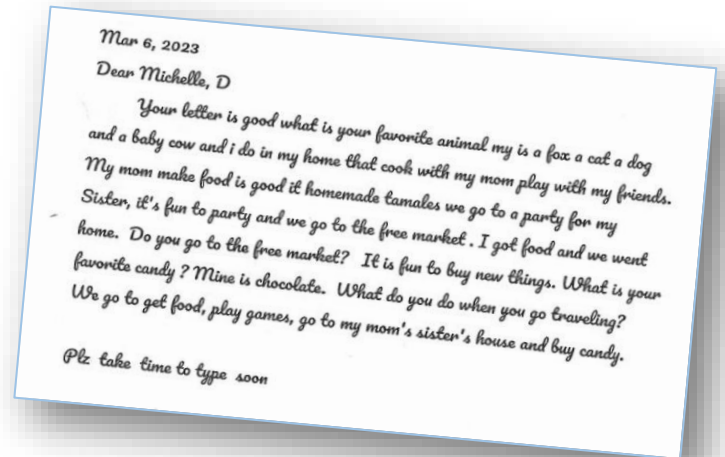 Mar 6, 2023
Dear Michelle, D
Your letter is good what is your favorite animal my is a fox a cat a dog
and a baby cow and i do in my home that cook with my mom play with my friends.
My mom make food is good it homemade tamales we go to a party for my
Sister, it's fun to party and we go to the free market . I got food and we went
home. Do you go to the free market? It is fun to buy new things. What is your
favorite candy ? Mine is chocolate. What do you do when you go traveling?
We go to get food, play games, go to my mom's sister's house and buy candy.
Plz take time to type soon